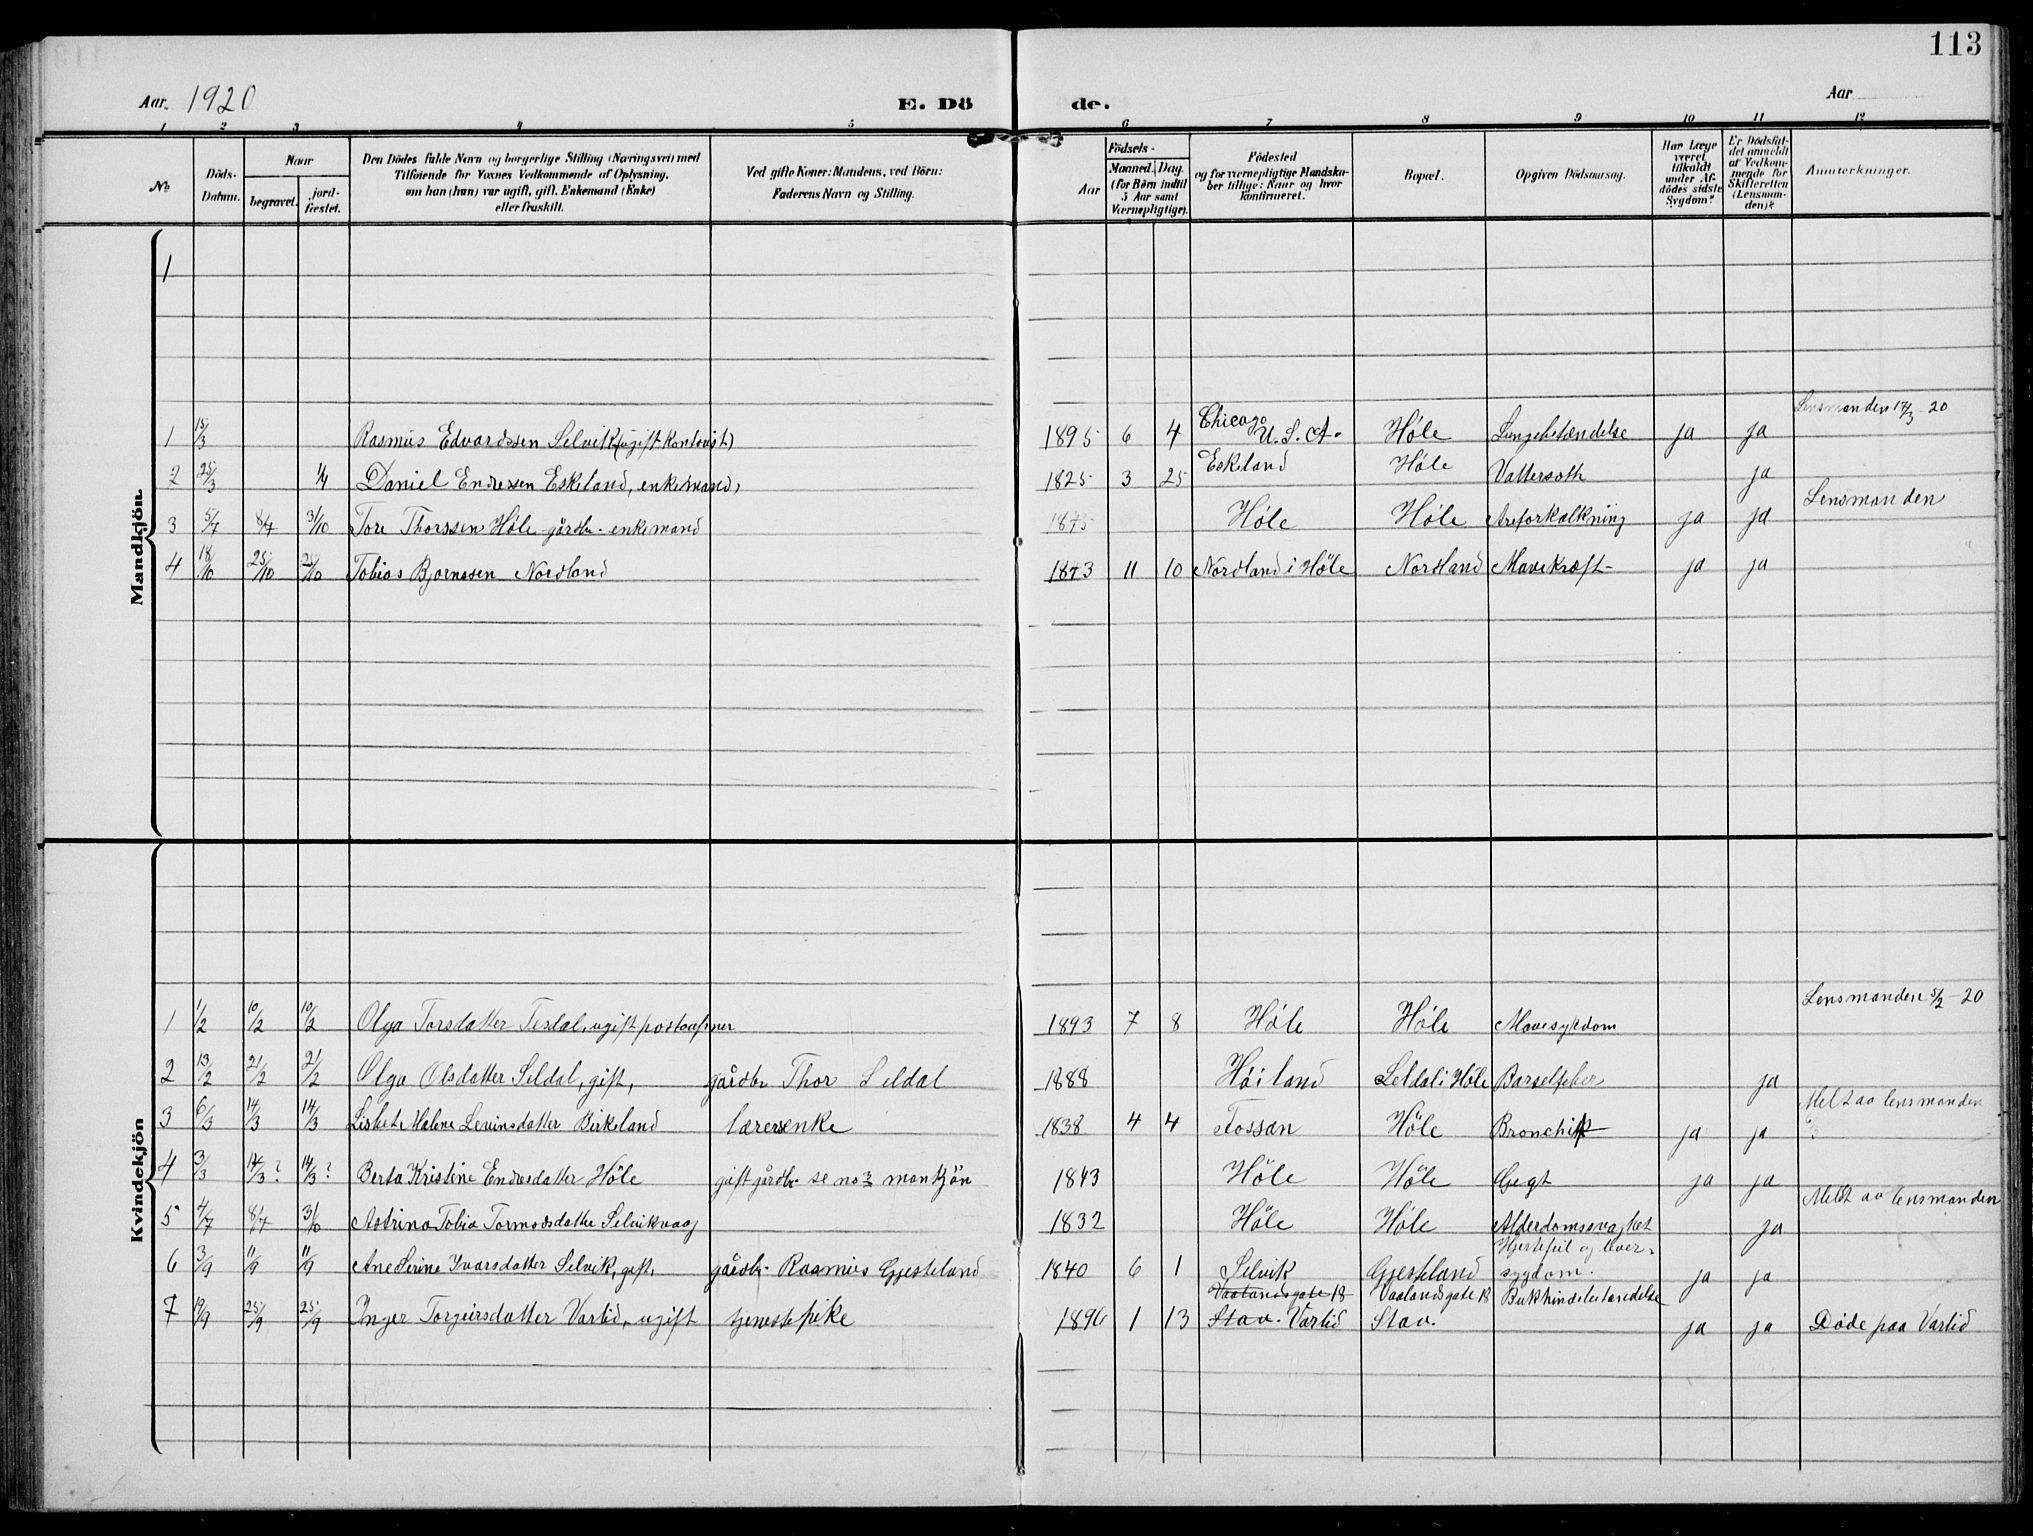 113
Aar. 1920 E. Dö de. Aar
1 2 3 4 5 6 7 8 9 10 11 12
No
Döds-Datum.
Naar
begravet.
jord-fæstet.
Den Dödes fulde Navn og borgerlige Stilling (Næringsvei) med
Tilföiende for Voxnes Vedkommende af Oplysning,
om han (hun) var ugift, gift, Enkemand (Enke)
eller fraskilt.
Ved gifte Koner: Mandens, ved Börn:
Faderens Navn og Stilling.
Födsels-
Aar
Maaned. Dag.
(for Börn indtil
5 Aar samt
Værnepligtige).
Födested
og for værnepligtige Mandska-
ber tillige: Naar og hvor
konfirmeret.
Bopæl.
Opgiven Dödsaarsag.
Har Læge
været
tilkaldt
under Af-
dödes sidste
Sygdom?
Er Dödsfal-
det anmeldt
af Vedkom-
mende for
Skifteretten
(Lensman-
den)?
Anmærkninger.
Mandkjön.
1
Lensmanden 17/3 - 20
1 15/3 Rasmus Edvardssen Selvik (ugift kontorist) 1895 6 4 Chicago U.S.A. Höle Lungebetændelse ja ja
2 25/3 1/4 Daniel Endressen Eskeland, enkemand, 1825 3 25 Eskeland Höle Vattersoth ja
Lensmanden
3 5/7 8/7 3/10 Tore Thorssen Höle gårdbr. enkemand 1845 Höle Höle Areforkalkning ja ja
4 18/10 25/10 25/10 Tobias Bjornssen Nordland 1843 11 10 Nordland i Höle Nordland Mavekræft ja ja
Kvindekjön
Lensmanden 5/2 - 20
1 1/2 10/2 10/2 Olga Torsdatter Tesdal, ugift 1893 7 8 Höle Höle Mavesykdom
2 13/2 21/2 21/2 Olga Olsdatter Seldal, gift, gårdbr Thor Seldal 1888 Höiland Seldal i Höle Barselfeber ja
Meldt av lensmanden
3 6/3 14/3 14/3 Lisbet Malene Levinsdatter Birkeland lærersenke 1838 4 4 Fossan Höle Bronchit ja ja
4 3/3 14/3? 14/3? Berta Kristine Endresdatter Höle gift gårdbr. se no 3 mankjön 1843 Höle Höle Gegt ja ja
Meldt av lensmanden
5 4/7 8/7 3/10 Astrina Tobia Tormodsdatter Selvikvaag 1832 Höle Höle Alderdomssvaghet ja
6 3/9 11/9 11/9 Ane Serine Ivarsdatter Selvik, gift, gårdbr. Rasmus Gjesteland 1840 6 1 Selvik Gjesteland Hjertefeil og lever-sygdom. ja ja
7 19/9 25/9 25/9 Inger Torgeirsdatter Varlid, ugift tjenestepike 1896 1 13 Vaalandsgate 18 Stav. Varlid Vaalandsgate 18 Stav. Bukhindebetændelse ja ja Döde paa Varlid